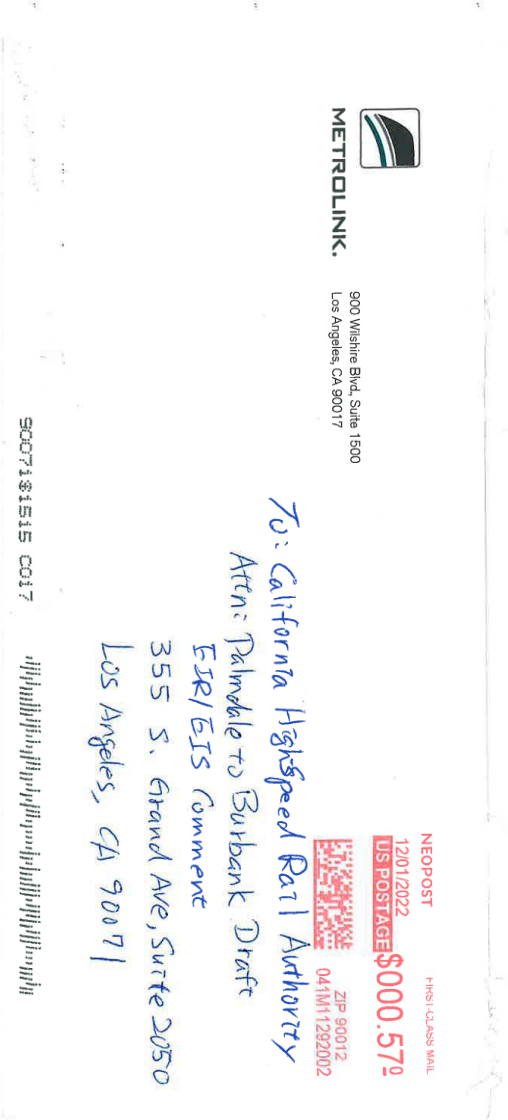 METROLINK.
900 Wilshire Blvd, Suite 1500
Los Angeles, CA 90017
NEOPOST
FIRST-CLASS MAIL
12/01/2022
US POSTAGE $000.57⁰
ZIP 90012
041M11292002
To: California HighSpeed Rail Authority
Attn: Palmdale to Burbank Draft
EIR/EIS Comment
355 S. Grand Ave, Suite 2050
Los Angeles, CA 90071
90071$1515 C017